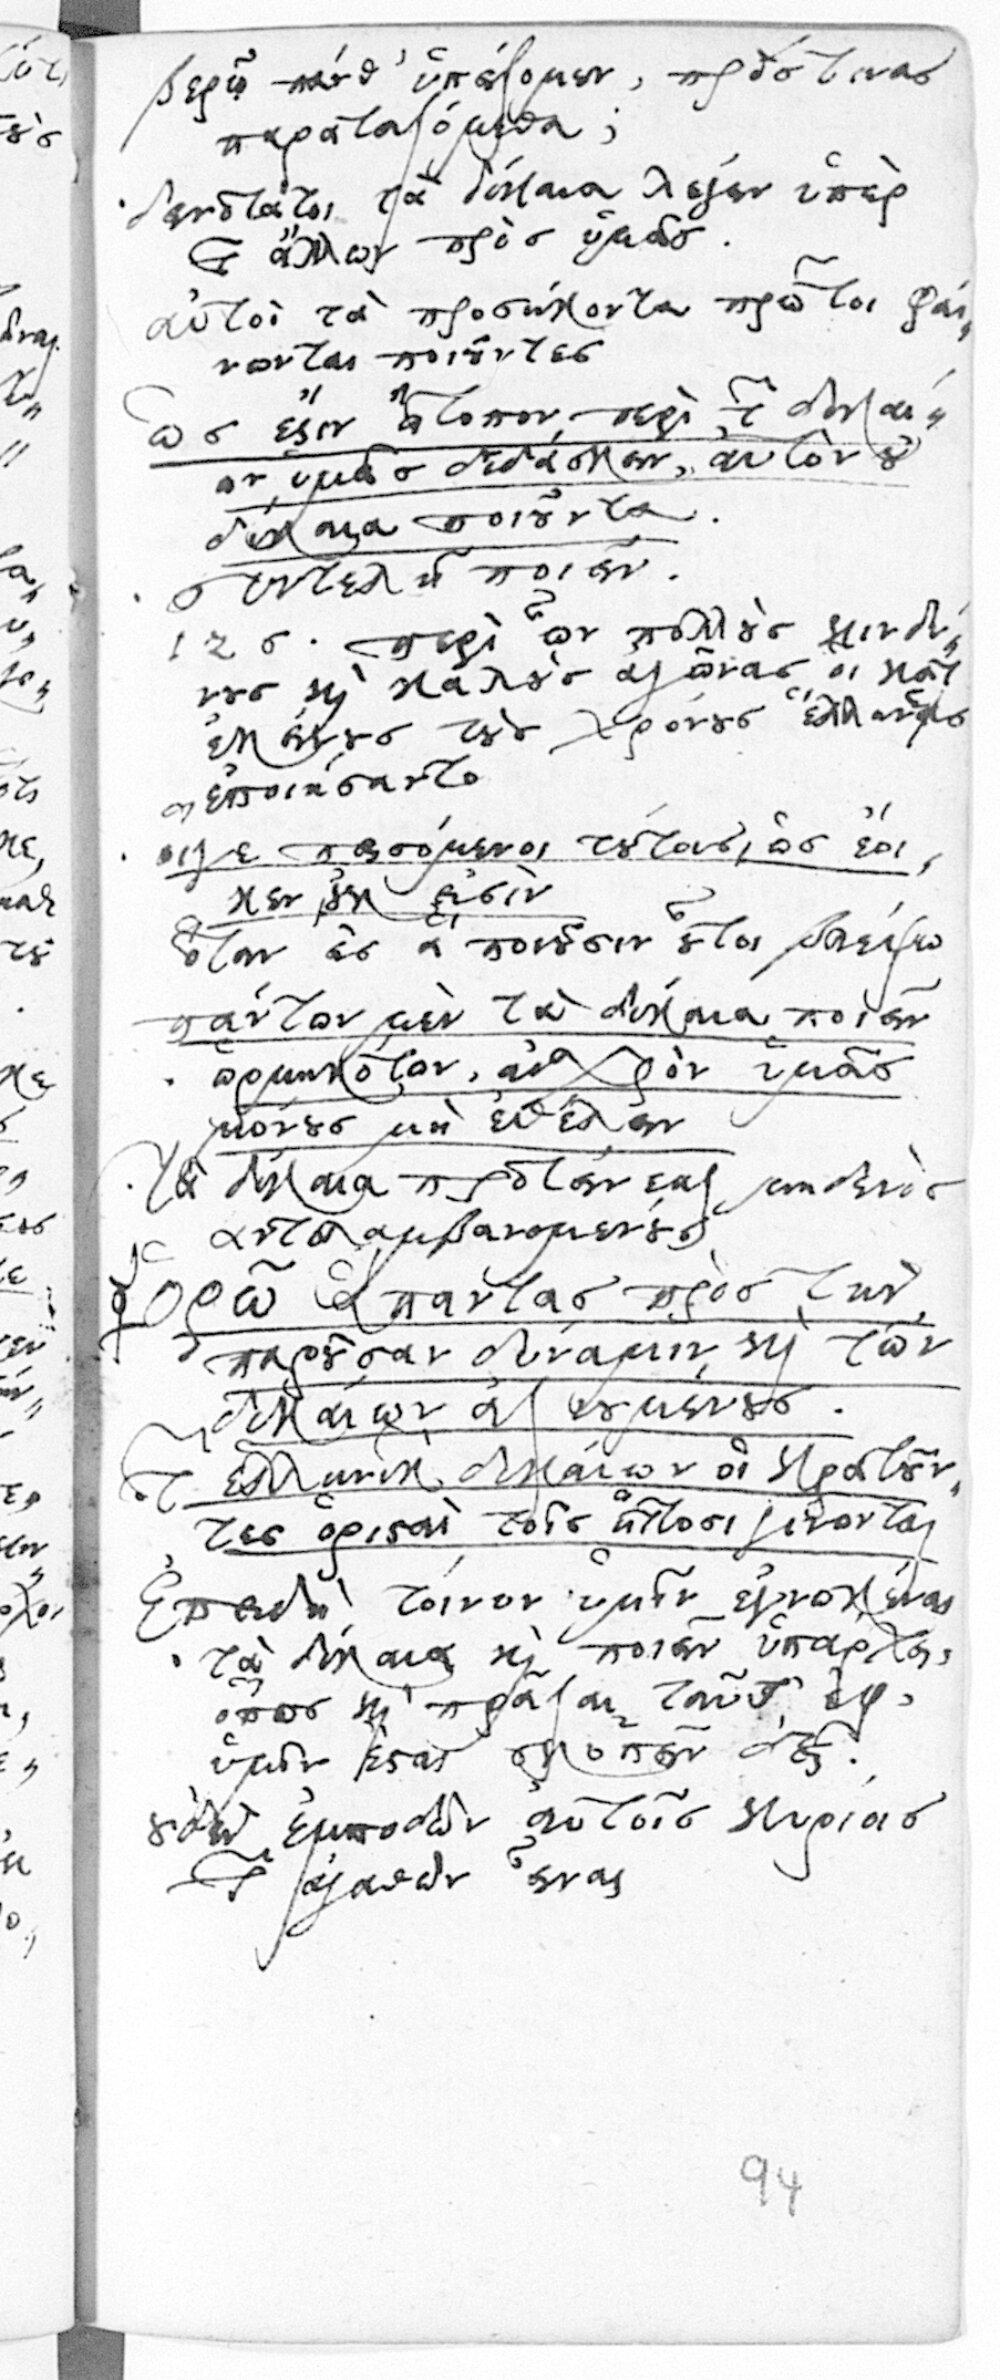 βερῷ πάνθ' ὑπέξομεν, πρὸς τινας
παραταξόμεθα;
δεινότατοι τὰ δίκαια λέγειν ὑπὲρ
τ ἄλλων πρὸς ὑμᾶς.
αὐτοὶ τὰ προσήκοντα πρῶτοι φαί„
νωνται ποιοῦντες
ὡς ἔςιν ἄτοπον περὶ τ δικαί„
ων ὑμᾶς διδάσκειν, αὐτὸν οὐ
δίκαια ποιοῦντα.
συντελῆ ποιεῖν.
126. περὶ ὧν πολλοὺς κινδύ„
νους καὶ καλοὺς ἀγῶνας οἱ κατ
ἐκείνους τοὺς χρόνους ἕλληνες
ἐποιήσαντο
οἵγε πεισόμενοι τούτοις, ὡς ἔοι,
κεν οὐκ εἰσὶν
ὅταν εἰς ἃ ποιοῦσιν οὗτοι βλέψω
πάντων μὲν τὰ δίκαια ποιεῖν
ὡρμηκότων, αἰσχρὸν ὑμᾶς
μόνους μὴ ἐθέλειν
τὰ δίκαια προτείνεσθαι μηδενὸς
ἀντιλαμβανομένους
ὁρῶ ἅπαντας πρὸς τὴν
παροῦσαν δύναμιν καὶ τῶν
δικαίων ἀξιουμένους.
τ ἑλληνικ δικαίων οἱ κρατοῦν„
τες ὁρισαὶ τοῖς ἥττοσι γίνονται
Ἐπειδὴ τοίνυν ὑμῖν ἐγνωκέναι
τὰ δίκαια καὶ ποιεῖν ὑπάρχει,
ὅπως καὶ πρᾶξαι ταῦτ' ἐφ,
ὑμῖν ἔςαι σκοπεῖν δεῖ.
οὐδὲν ἐμποδὼν αὐτοῖς κυρίοις
τ ἀγαθῶν εἶναι
94